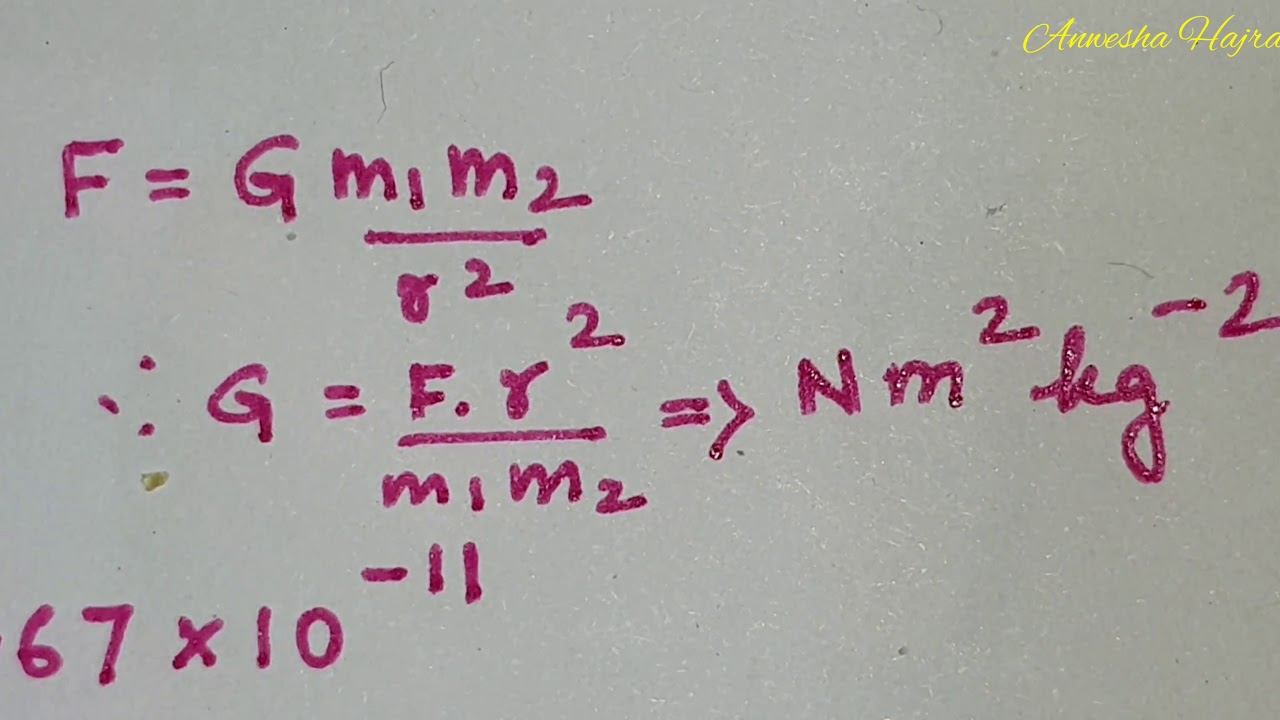 Anwesha Hajra
F = G m₁m₂
r²
∴ G = F.r² => Nm²kg⁻²
m₁m₂
.67 × 10⁻¹¹